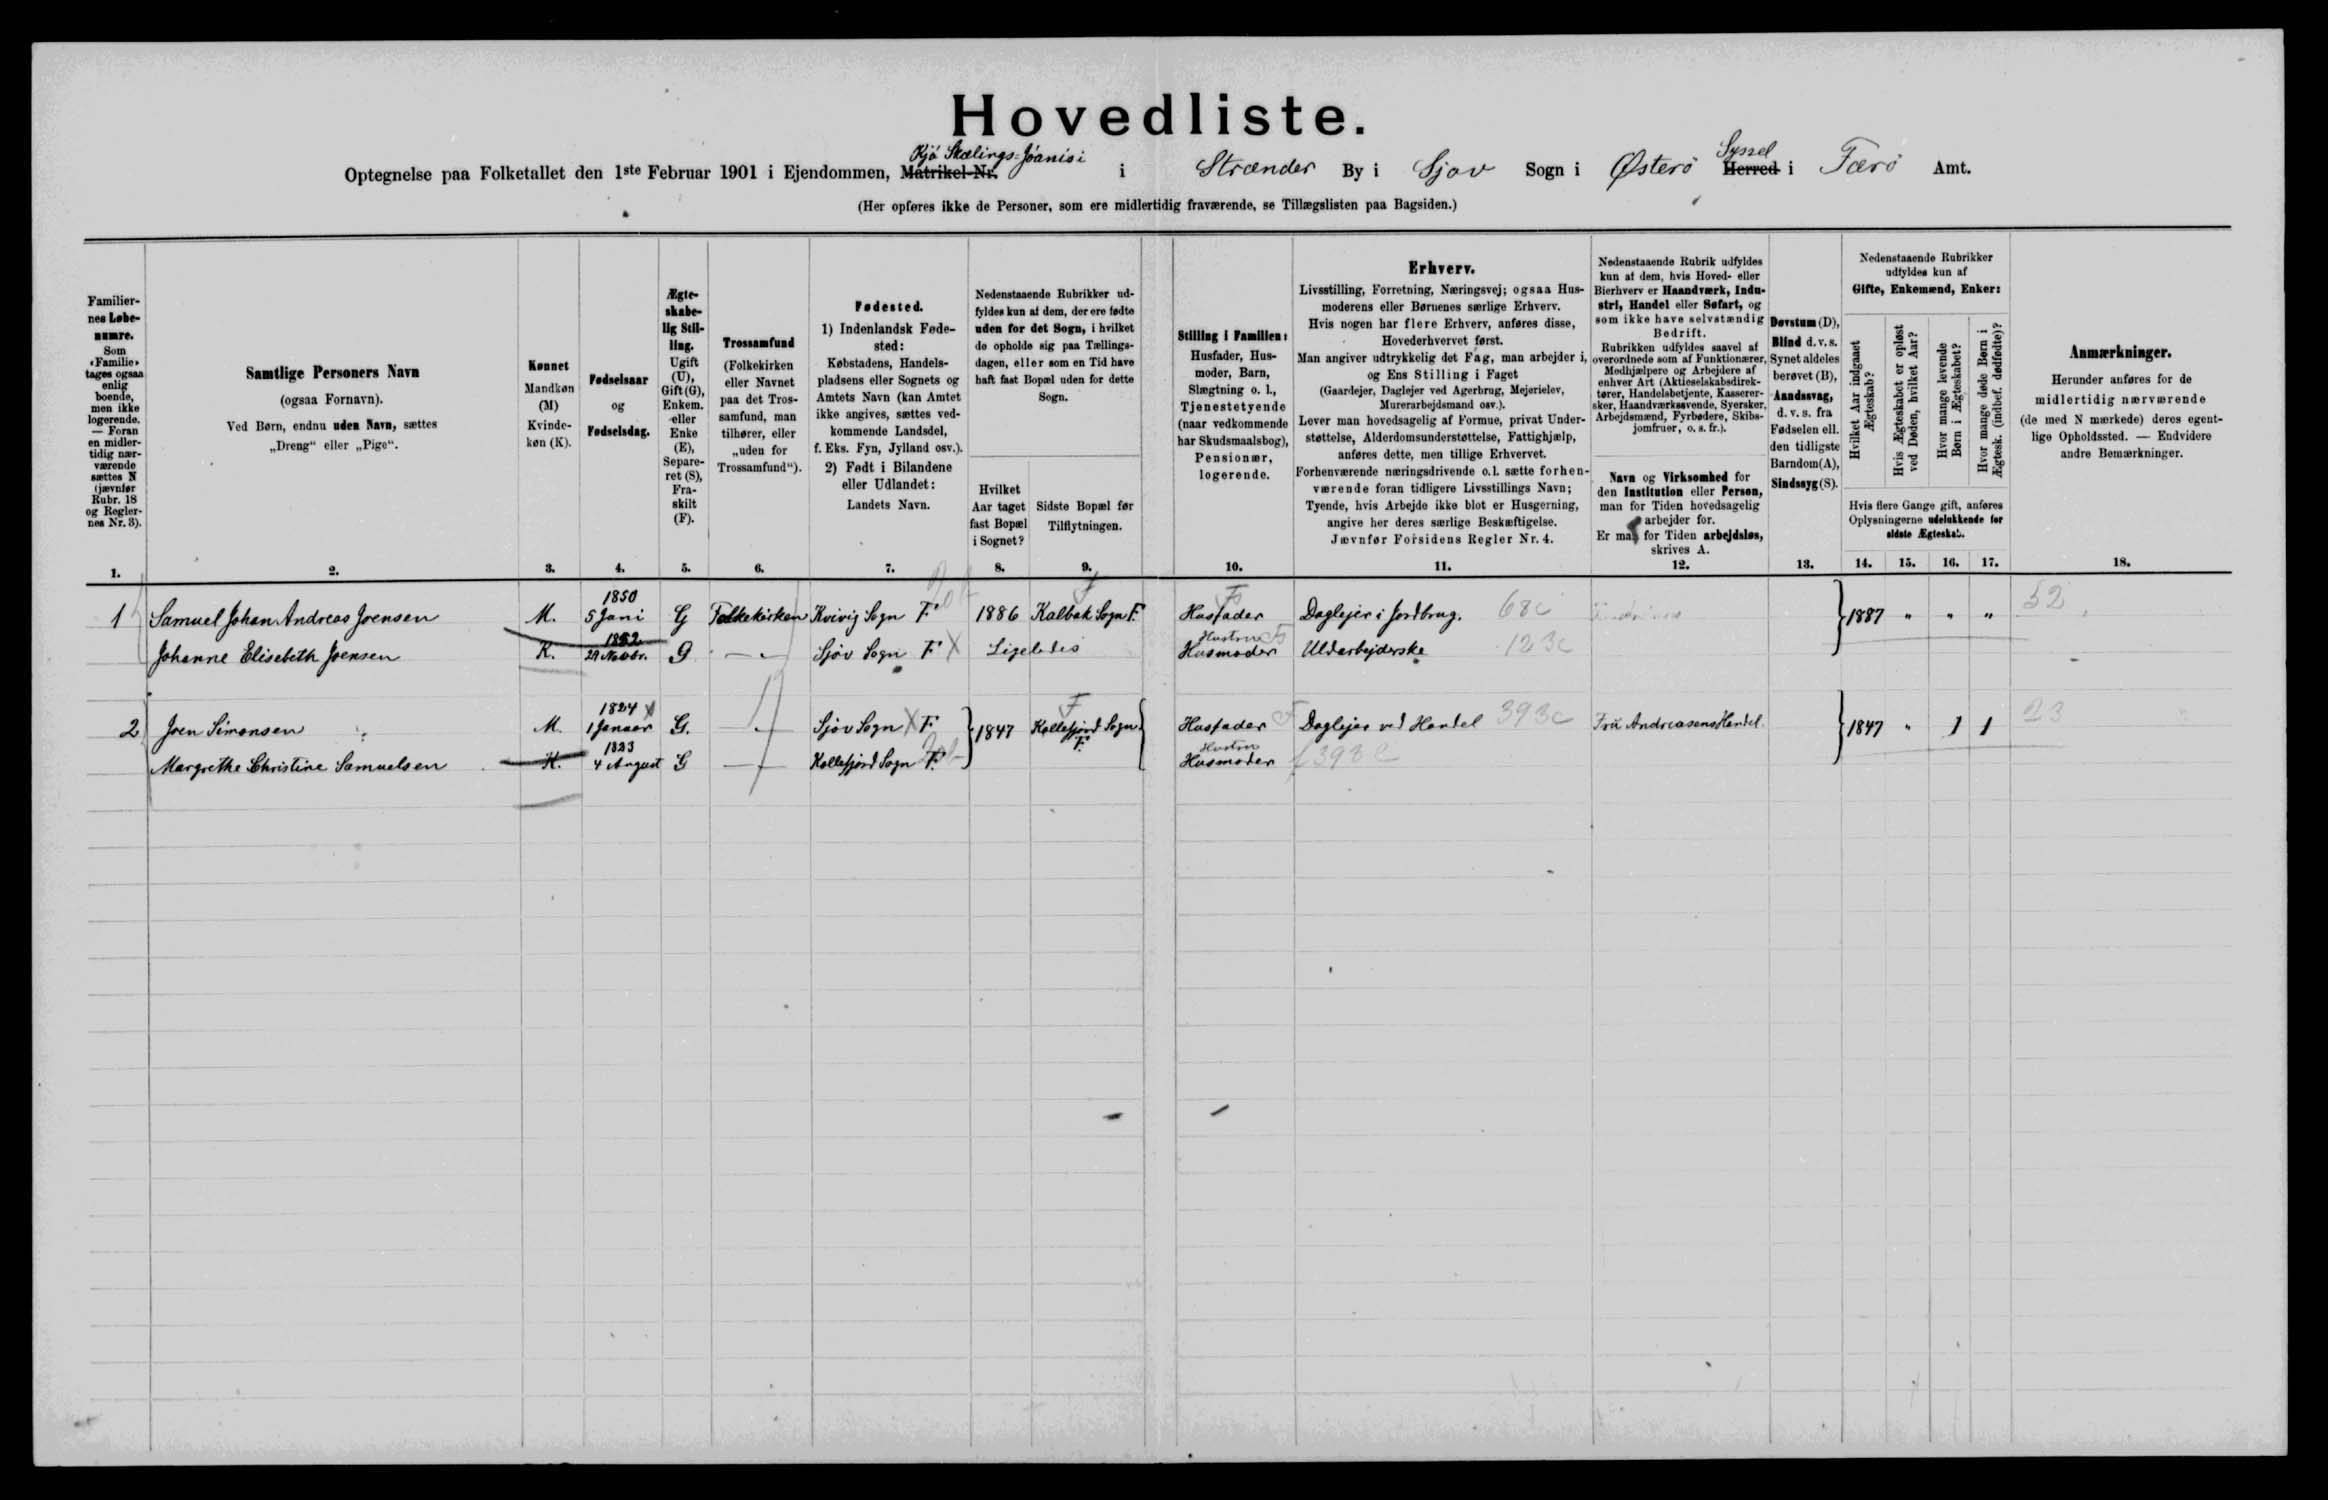 Hovedliste.
Optegnelse paa Folketallet den 1ste Februar 1901 i Ejendommen, Matrikel-Nr. Kjá Skælings-Jóanisi i Strænder By i Sjov Sogn i Østerö Herred Syssel i Færö Amt.
(Her opføres ikke de Personer, som ere midlertidig fraværende, se Tillægslisten paa Bagsiden.)
Familiernes Løbenumre.
Som «Familie» tages ogsaa enlig boende, men ikke logerende. — Foran en midlertidig nærværende sættes N (jævnfør Rubr. 18 og Reglernes Nr. 3).
Samtlige Personers Navn
(ogsaa Fornavn).
Ved Børn, endnu uden Navn, sættes
„Dreng“ eller „Pige“.
Kønnet
Mandkøn (M)
Kvindekøn (K).
Fødselsaar
og
Fødselsdag.
Ægteskabelig Stilling.
Ugift (U), Gift (G), Enkem. eller Enke (E), Separeret (S), Fraskilt (F).
Trossamfund
(Folkekirken eller Navnet paa det Trossamfund, man tilhører, eller „uden for Trossamfund“).
Fødested.
1) Indenlandsk Fødested:
Købstadens, Handelspladsens eller Sognets og Amtets Navn (kan Amtet ikke angives, sættes vedkommende Landsdel, f. Eks. Fyn, Jylland osv.).
2) Født i Bilandene eller Udlandet:
Landets Navn.
Nedenstaaende Rubrikker udfyldes kun af dem, der ere fødte uden for det Sogn, i hvilket de opholde sig paa Tællingsdagen, eller som en Tid have haft fast Bopæl uden for dette Sogn.
Hvilket Aar taget fast Bopæl i Sognet?
Sidste Bopæl før Tilflytningen.
Stilling i Familien:
Husfader, Husmoder, Barn, Slægtning o. l., Tjenestetyende (naar vedkommende har Skudsmaalsbog), Pensionær, logerende.
Erhverv.
Livsstilling, Forretning, Næringsvej; ogsaa Husmoderens eller Børnenes særlige Erhverv.
Hvis nogen har flere Erhverv, anføres disse, Hovederhvervet først.
Man angiver udtrykkelig det Fag, man arbejder i, og Ens Stilling i Faget
(Gaardejer, Daglejer ved Agerbrug, Mejerielev, Murerarbejdsmand osv.).
Lever man hovedsagelig af Formue, privat Understøttelse, Alderdomsunderstøttelse, Fattighjælp, anføres dette, men tillige Erhvervet.
Forhenværende næringsdrivende o. l. sætte forhenværende foran tidligere Livsstillings Navn;
Tyende, hvis Arbejde ikke blot er Husgerning, angive her deres særlige Beskæftigelse.
Jævnfør Forsidens Regler Nr. 4.
Nedenstaaende Rubrik udfyldes kun af dem, hvis Hoved- eller Bierhverv er Haandværk, Industri, Handel eller Søfart, og som ikke have selvstændig Bedrift.
Rubrikken udfyldes saavel af overordnede som af Funktionærer, Medhjælpere og Arbejdere af enhver Art (Aktieselskabsdirektører, Handelsbetjente, Kasserersker, Haandværkssvende, Syersker, Arbejdsmænd, Fyrbødere, Skibsjomfruer, o. s. fr.).
Navn og Virksomhed for den Institution eller Person, man for Tiden hovedsagelig arbejder for.
Er man for Tiden arbejdsløs, skrives A.
Døvstum (D), Blind d. v. s. Synet aldeles berøvet (B), Aandssvag, d. v. s. fra Fødselen ell. den tidligste Barndom (A), Sindssyg (S).
Nedenstaaende Rubrikker udfyldes kun af
Gifte, Enkemænd, Enker:
Hvilket Aar indgaaet Ægteskab?
Hvis Ægteskabet er opløst ved Døden, hvilket Aar?
Hvor mange levende Børn i Ægteskabet?
Hvor mange døde Børn i Ægtesk. (indbef. dødfødte)?
Hvis flere Gange gift, anføres Oplysningerne udelukkende for sidste Ægteskab.
Anmærkninger.
Herunder anføres for de midlertidig nærværende (de med N mærkede) deres egentlige Opholdssted. — Endvidere andre Bemærkninger.
1. 2. 3. 4. 5. 6. 7. 8. 9. 10. 11. 12. 13. 14. 15. 16. 17. 18.
1 Samuel Johan Andreas Joensen M. 1850 5 Juni G Folkekirken Kvivig Sogn F. 1886 Kalbak Sogn F. Husfader Daglejer i Jordbrug. 68c 1887 „ „ „ 52
Johanne Elisebeth Joensen K. 1852 29 Novbr. G — „ — Sjóv Sogn F. Ligeledes Husmoder Hustru Uldarbejderske 123c
2 Joen Simonsen M. 1824 1 Januar G. — „ — Sjóv Sogn F. 1847 Kollefjord Sogn F. Husfader F Daglejer ved Handel 393c Fru Andreasens Handel. 1847 „ 1 1 23
Margrethe Christine Samuelsen K. 1823 4 August G — „ — Kollefjord Sogn F. Husmoder Hustru f 393c